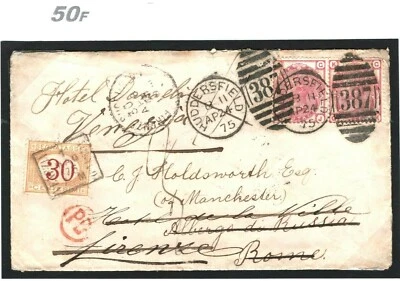 50F
Hotel Danieli
Venezia
HUDDERSFIELD
11
AP 24
75
387
387
30
PD
C J Holdsworth Esq
(of Manchester)
Hotel de la Ville
Albergo de Russia
Firenze Rome